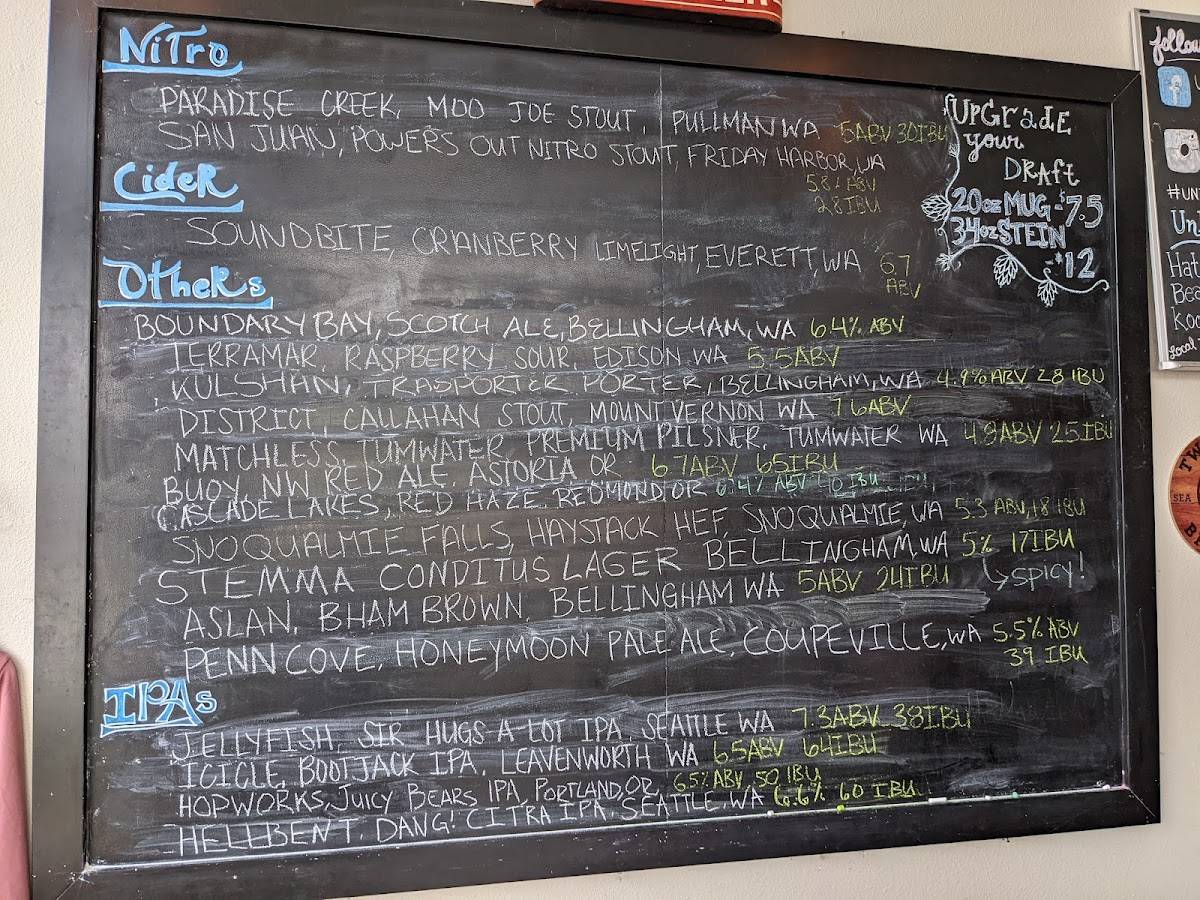 NiTro
PARADISE CREEK, MOO JOE STOUT, PULLMAN WA 5ABV 30IBU
SAN JUAN, POWERS OUT NITRO STOUT, FRIDAY HARBOR, WA
5.8% ABV
28 IBU
CideR
SOUNDBITE, CRANBERRY LIMELIGHT, EVERETT, WA 6.7
ABV
OTHeRs
BOUNDARY BAY, SCOTCH ALE, BELLINGHAM, WA 6.4% ABV
TERRAMAR, RASPBERRY SOUR, EDISON WA 5.5ABV
KULSHAN, TRASPORTER PORTER, BELLINGHAM, WA 4.9% ABV 28 IBU
DISTRICT, CALLAHAN STOUT, MOUNT VERNON WA 7.6ABV
MATCHLESS, TUMWATER PREMIUM PILSNER, TUMWATER WA 4.9ABV 25IBU
BUOY, NW RED ALE, ASTORIA OR 6.7ABV 65IBU
CASCADE LAKES, RED HAZE, REDMOND OR 6.4% ABV 40 IBU
SNOQUALMIE FALLS, HAYSTACK HEF, SNOQUALMIE, WA 5.3 ABV, 18 IBU
STEMMA CONDITUS LAGER BELLINGHAM, WA 5% 17IBU
SPICY!
ASLAN, BHAM BROWN, BELLINGHAM WA 5ABV 24IBU
PENN COVE, HONEYMOON PALE ALE, COUPEVILLE, WA 5.5% ABV
39 IBU
IPAs
JELLYFISH, SIR HUGS-A-LOT IPA, SEATTLE WA 7.3ABV 38IBU
ICICLE, BOOTJACK IPA, LEAVENWORTH WA 6.5ABV 64IBU
HOPWORKS, JUICY BEARS IPA, PORTLAND, OR, 6.5% ABV, 50 IBU
HELLBENT, DANG! CITRA IPA, SEATTLE, WA 6.6% 60 IBU
UPGradE
your
DRAft
20oz MUG - $7.5
34oz STEIN
- $12
follow
Un
Hat
Bea
Koo
Local
SEA